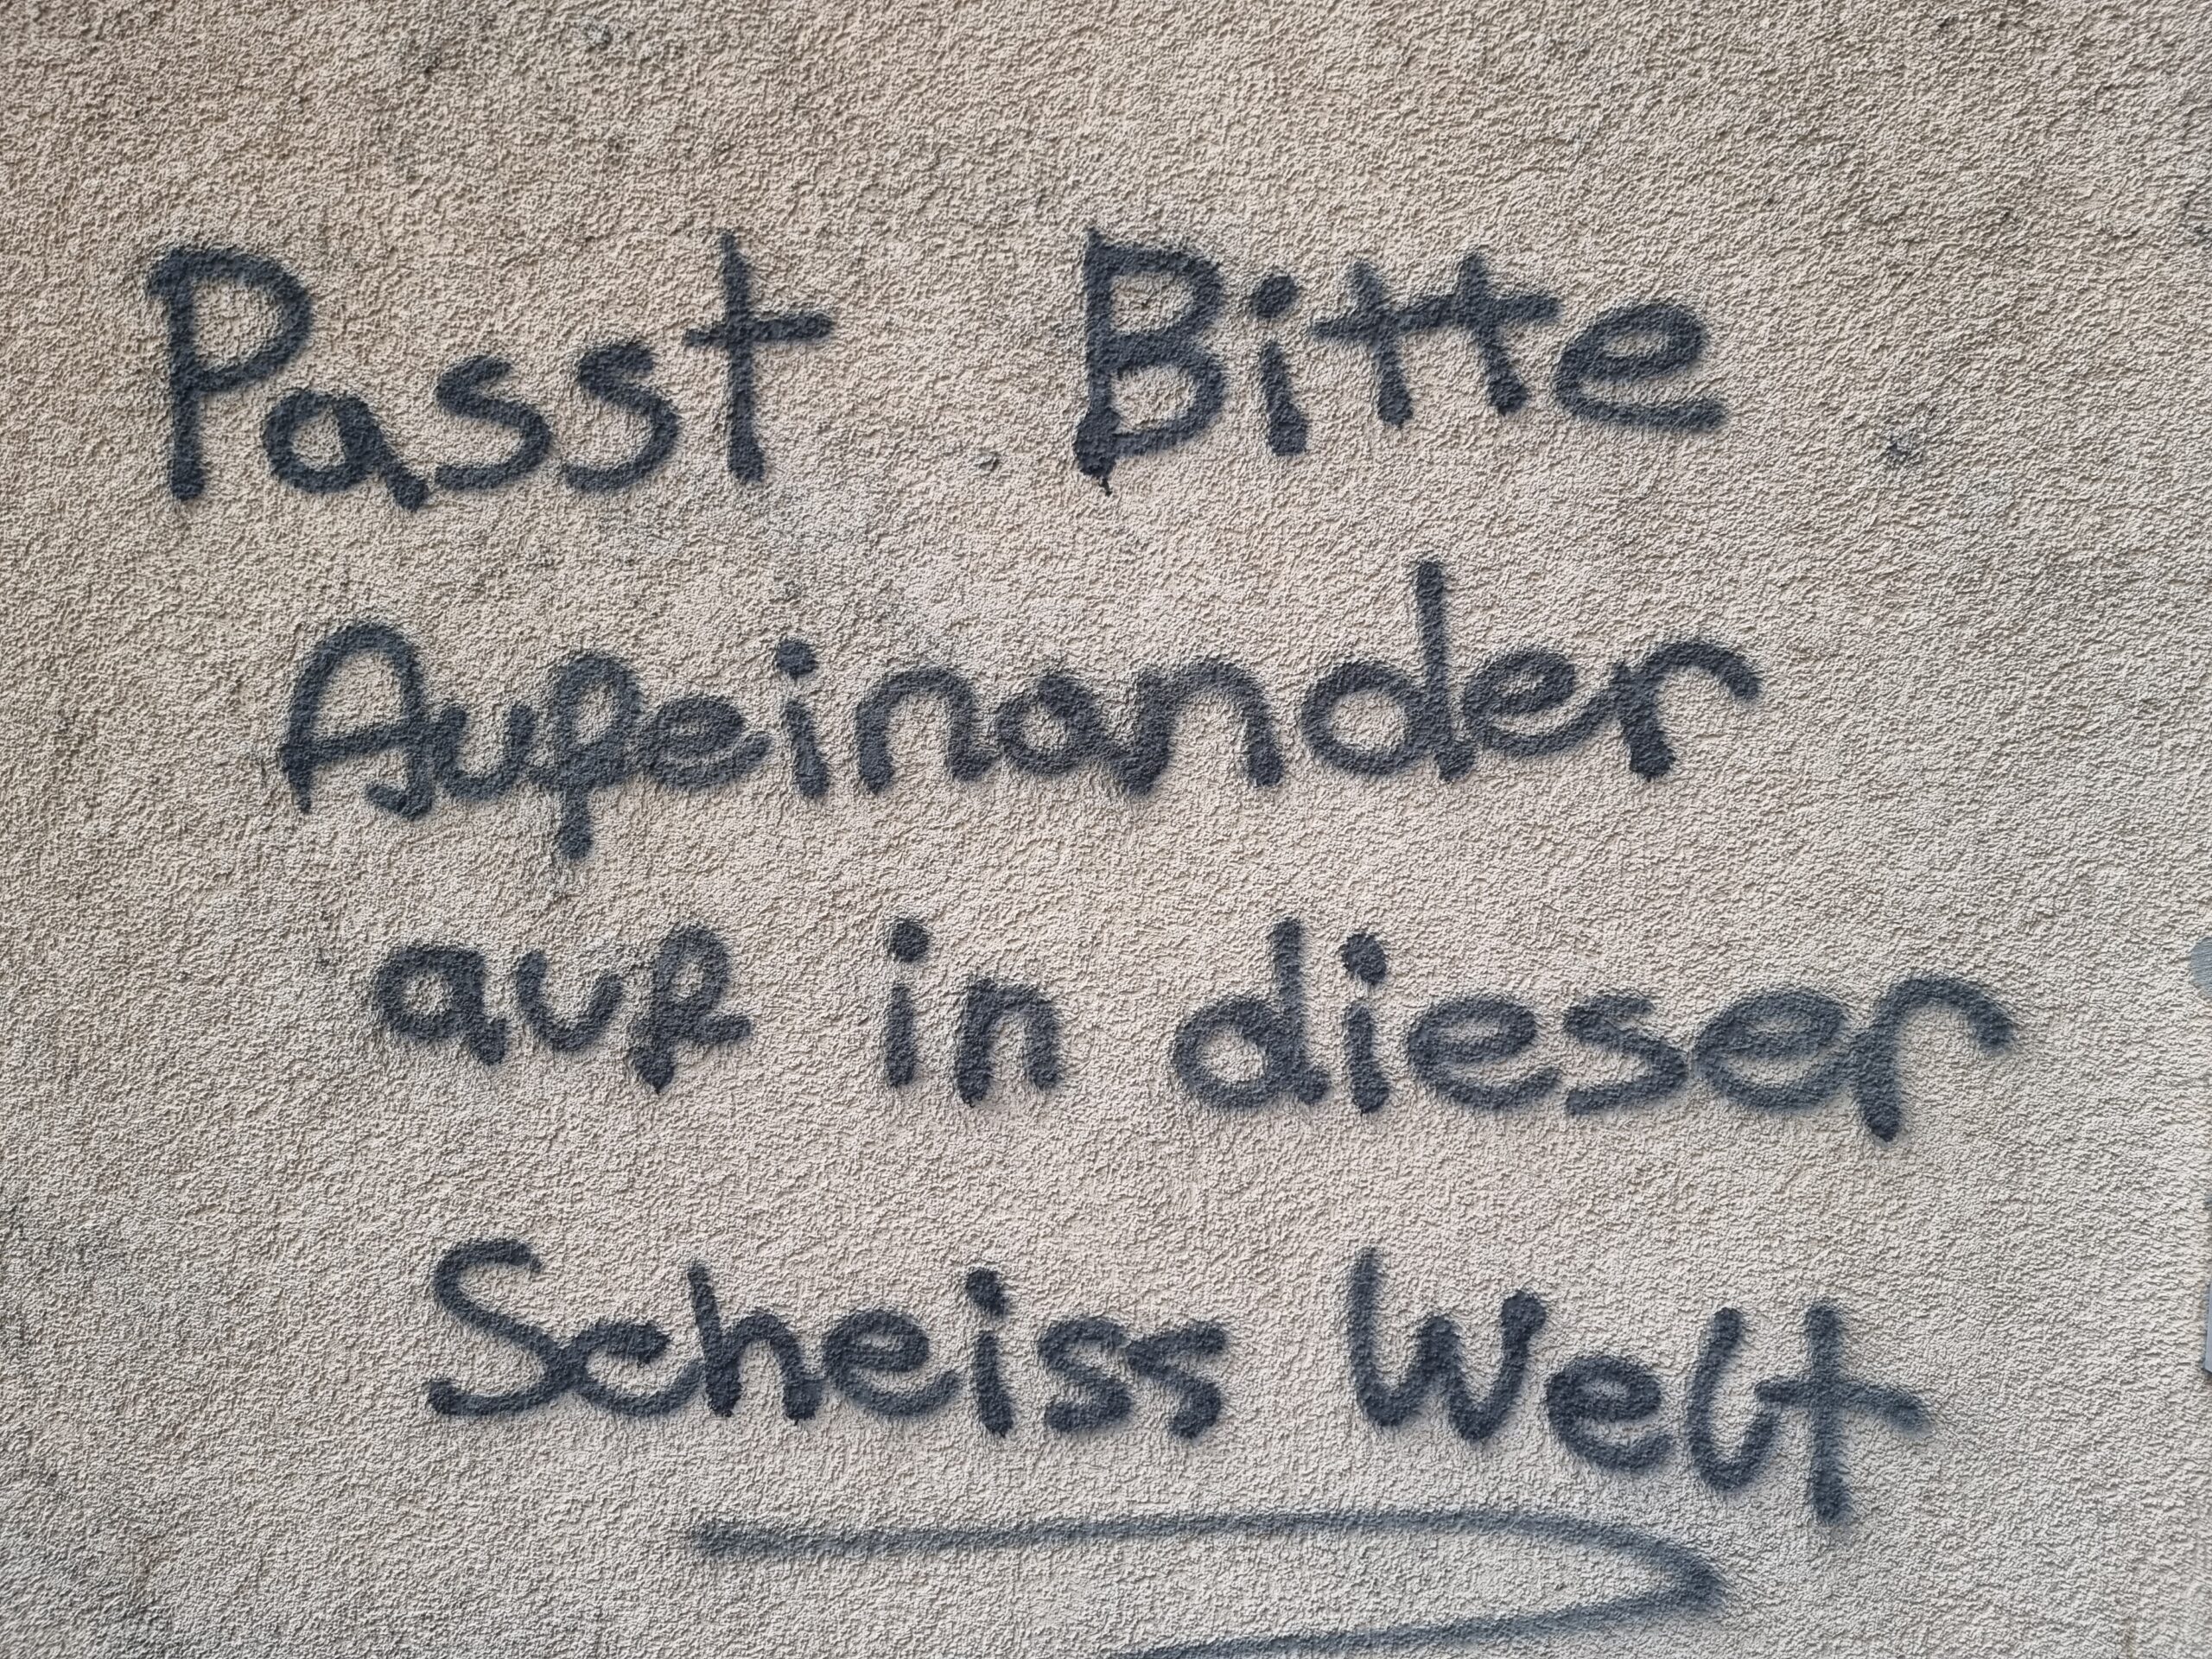 Passt Bitte
Aufeinander
auf in dieser
Scheiss Welt